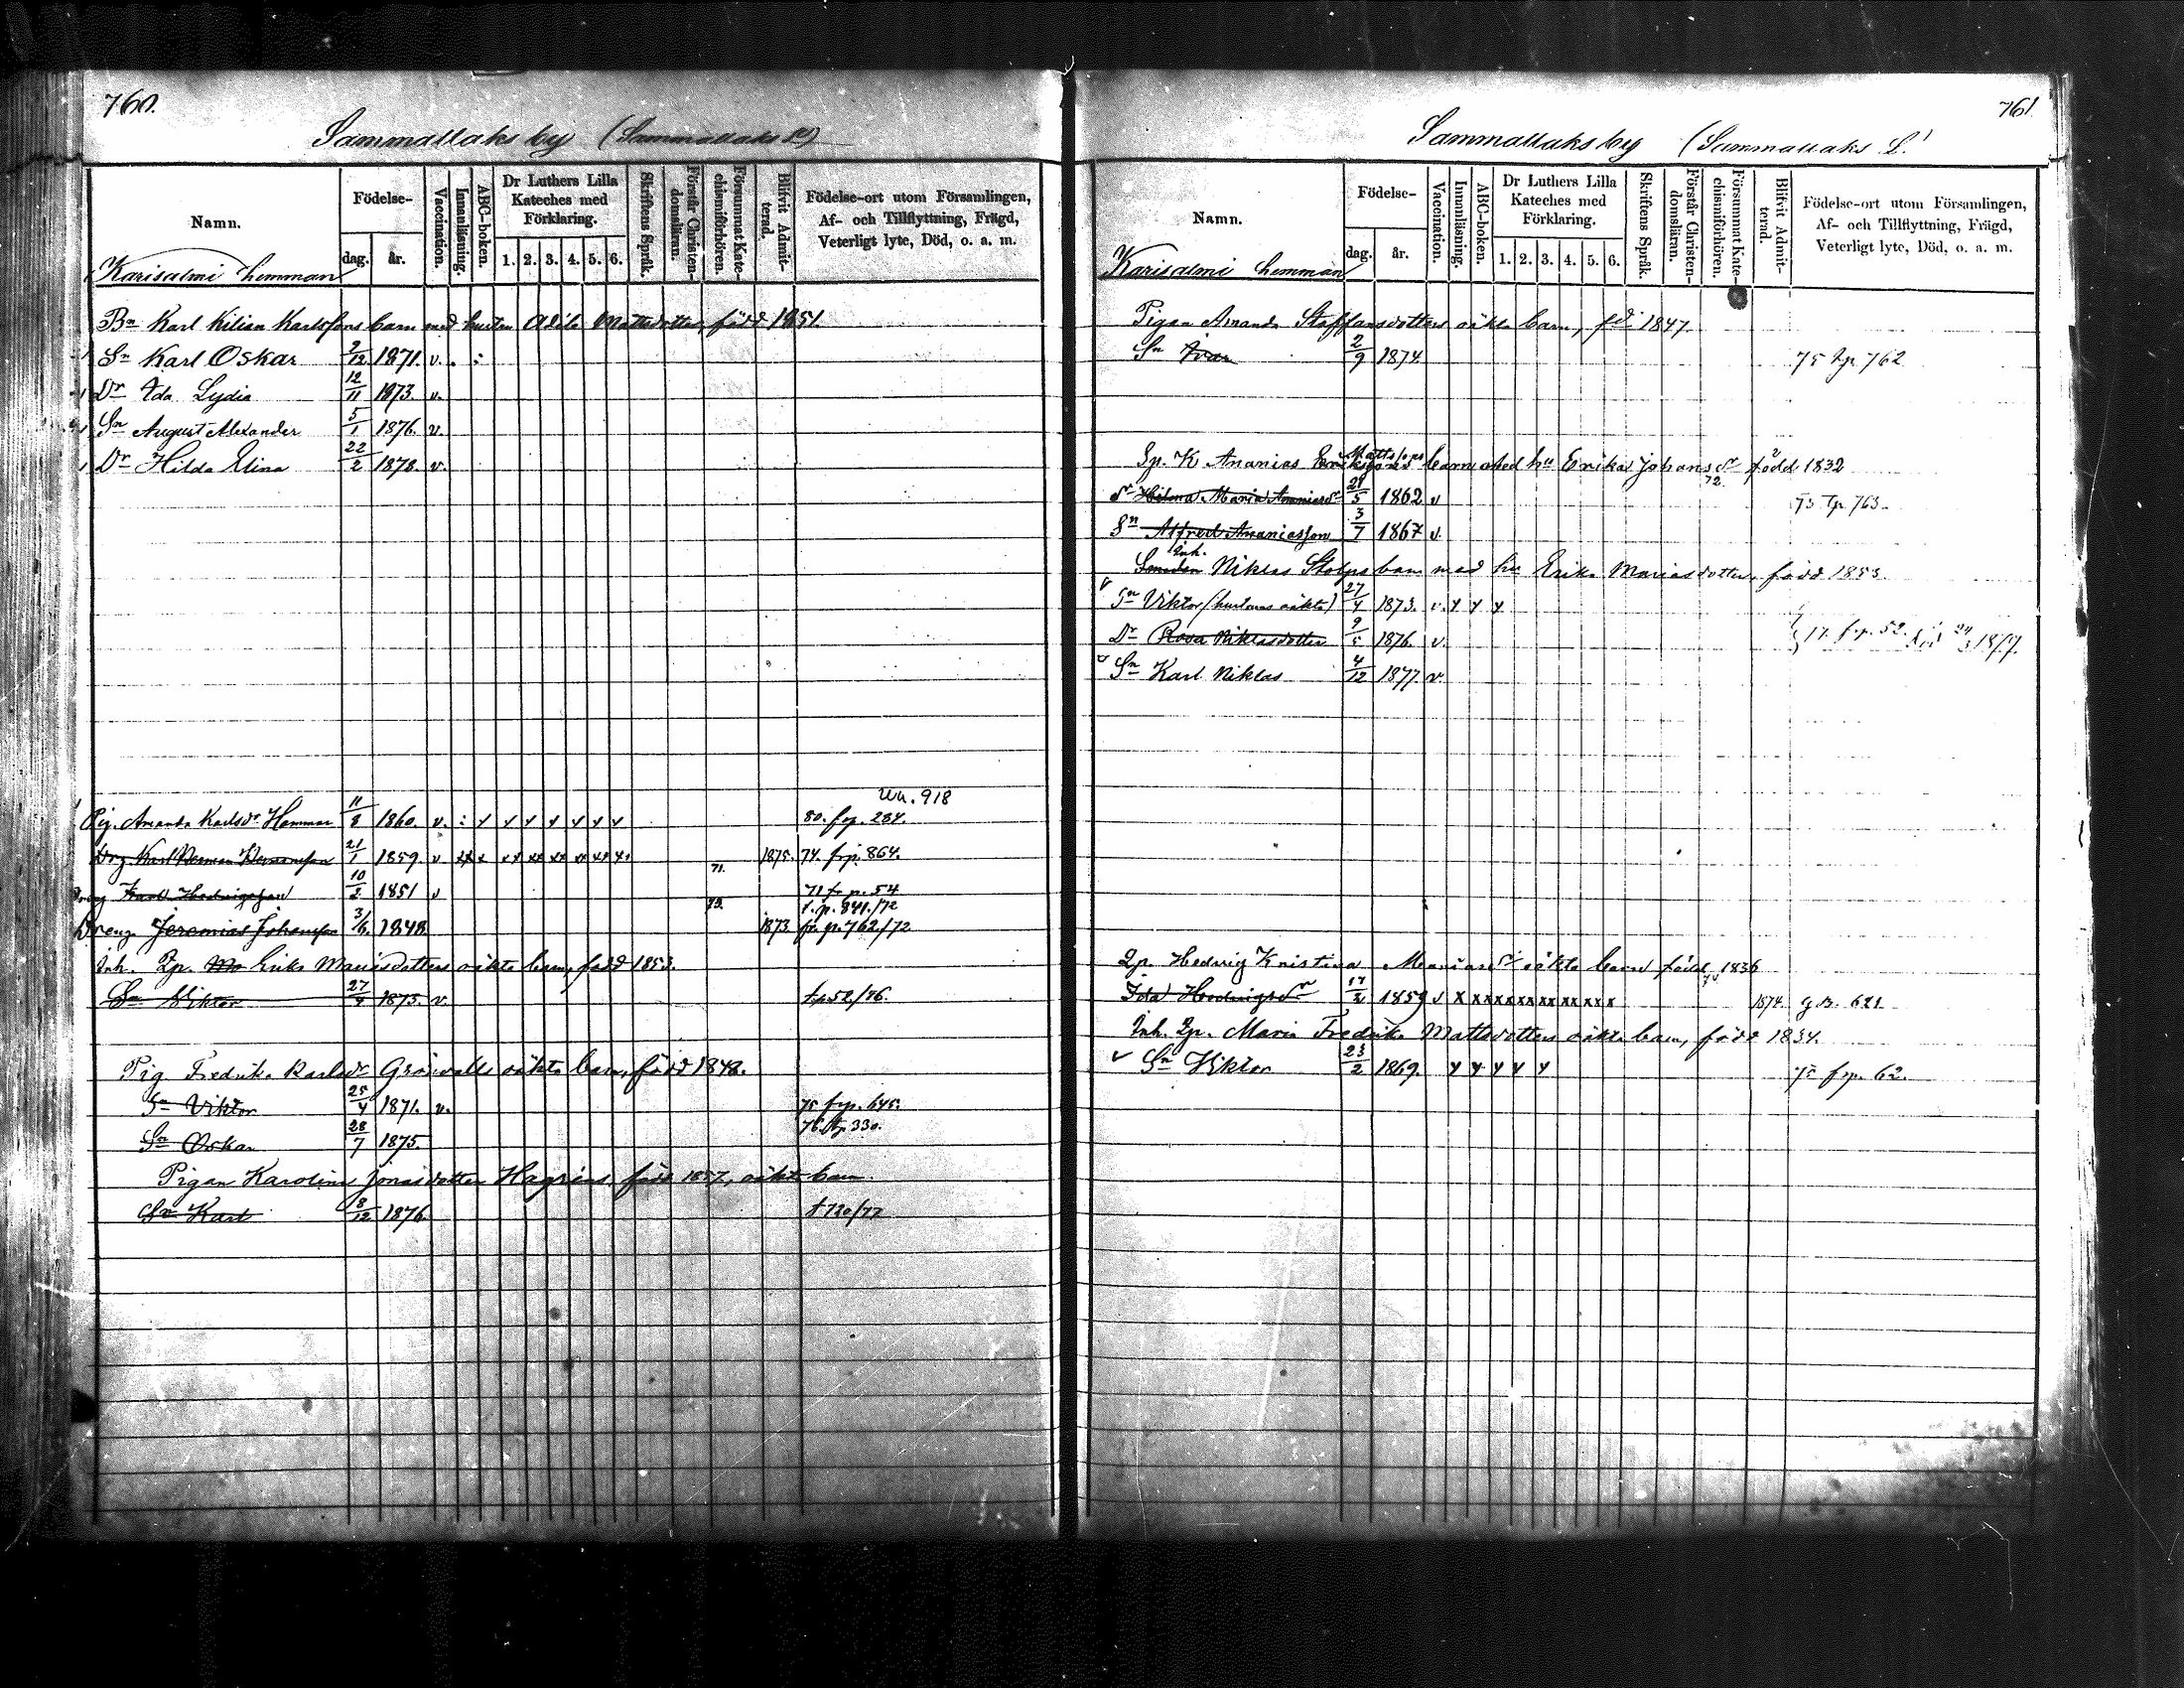 760.
Sammallaks by (Sammallaks
Namn.
Födelse-
dag.
år.
Vaccination.
Innanläsning.
ABC-boken.
Dr Luthers Lilla Kateches med Förklaring.
1. 2. 3. 4. 5. 6.
Skriftens Språk.
Förstår Christendomsläran.
Försummat Katechismiförhören.
Blifvit Admitterad.
Födelse-ort utom Församlingen, Af- och Tillflyttning, Frägd, Veterligt lyte, Död, o. a. m.
Karisalmi hemman
Bn Karl Kilian Karlssons barn med hustru Adéle Mattsdotter, född 1851.
Sn Karl Oskar 2/12 1871. v. . :
Dr Ida Lydia 12/11 1873 v.
Sn August Alexander 5/1 1876. v.
Dr Hilda Elina 22/2 1878. v.
un. 918
Pig. Amanda Karlsdr Hammar 11/8 1860. v. : y y y y y y y 80. frp. 284.
Drg. Karl Herman Hermansson 21/1 1859. v xx x xx xx xx xx xx x. 1875. 74. frp. 864.
71.
Dreng Karl Hedvigsson 10/2 1851 v 71 fr p. 54
73. t. p. 841./72
Dreng. Jeremias Johansson 3/6. 1848. 1873 fr. p. 762/72
Inh. Qp. Erika Mariasdotters oäkta barn, född 1853.
Sn Viktor 27/4 1873. v. tp 52/76.
Pig. Fredrika Karlsdr Grönvalls oäkta barn, född 1848.
Sn Viktor 25/4 1871. v. 75 frp. 645.
76. tp 330.
Sn Oskar 28/7 1875.
Pigan Karolina Jonasdotter Hagrins, född 1857, oäkta barn.
Sn Karl 18/12 1876. t 720/77
761.
Sammallaks by (Sammallaks
Namn.
Födelse-
dag.
år.
Vaccination.
Innanläsning.
ABC-boken.
Dr Luthers Lilla Kateches med Förklaring.
1. 2. 3. 4. 5. 6.
Skriftens Språk.
Förstår Christendomsläran.
Försummat Katechismiförhören.
Blifvit Admitterad.
Födelse-ort utom Församlingen, Af- och Tillflyttning, Frägd, Veterligt lyte, Död, o. a. m.
Karisalmi hemman
Pigan Amanda Staffansdotters oäkta barn, fd. 1847.
Sn Ivar 2/9 1874. 75 tp. 762
Mattssons
Sp. K Ananias Erikssons barn med hu Erika Johansdr född 1832
72.
Dr Hilma Maria Ananiasdr 28/5 1862 v 73 tp. 763.
Sn Alfred Ananiasson 3/7 1867 v.
Inh.
Smeden Niklas Stolps barn med hu Erika Mariasdotter, född 1853.
Sn Viktor (hustruns oäkta) 27/4 1873. v. y y y
Dr Rosa Niklasdotter 9/5 1876. v. 77. frp. 52.
Sn Karl Niklas 4/12 1877. v.
Qp. Hedvig Kristina Mariasdr oäkta barn född 1836
Ida Hedvigsdr 17/2 1859 v x xx xx xx xx xx x x 1874. g B. 621
Inh. Qp. Maria Fredrika Mattsdotters oäkta barn, född 1834.
Sn Viktor 23/2 1869. y y y y y 75 frp. 62.